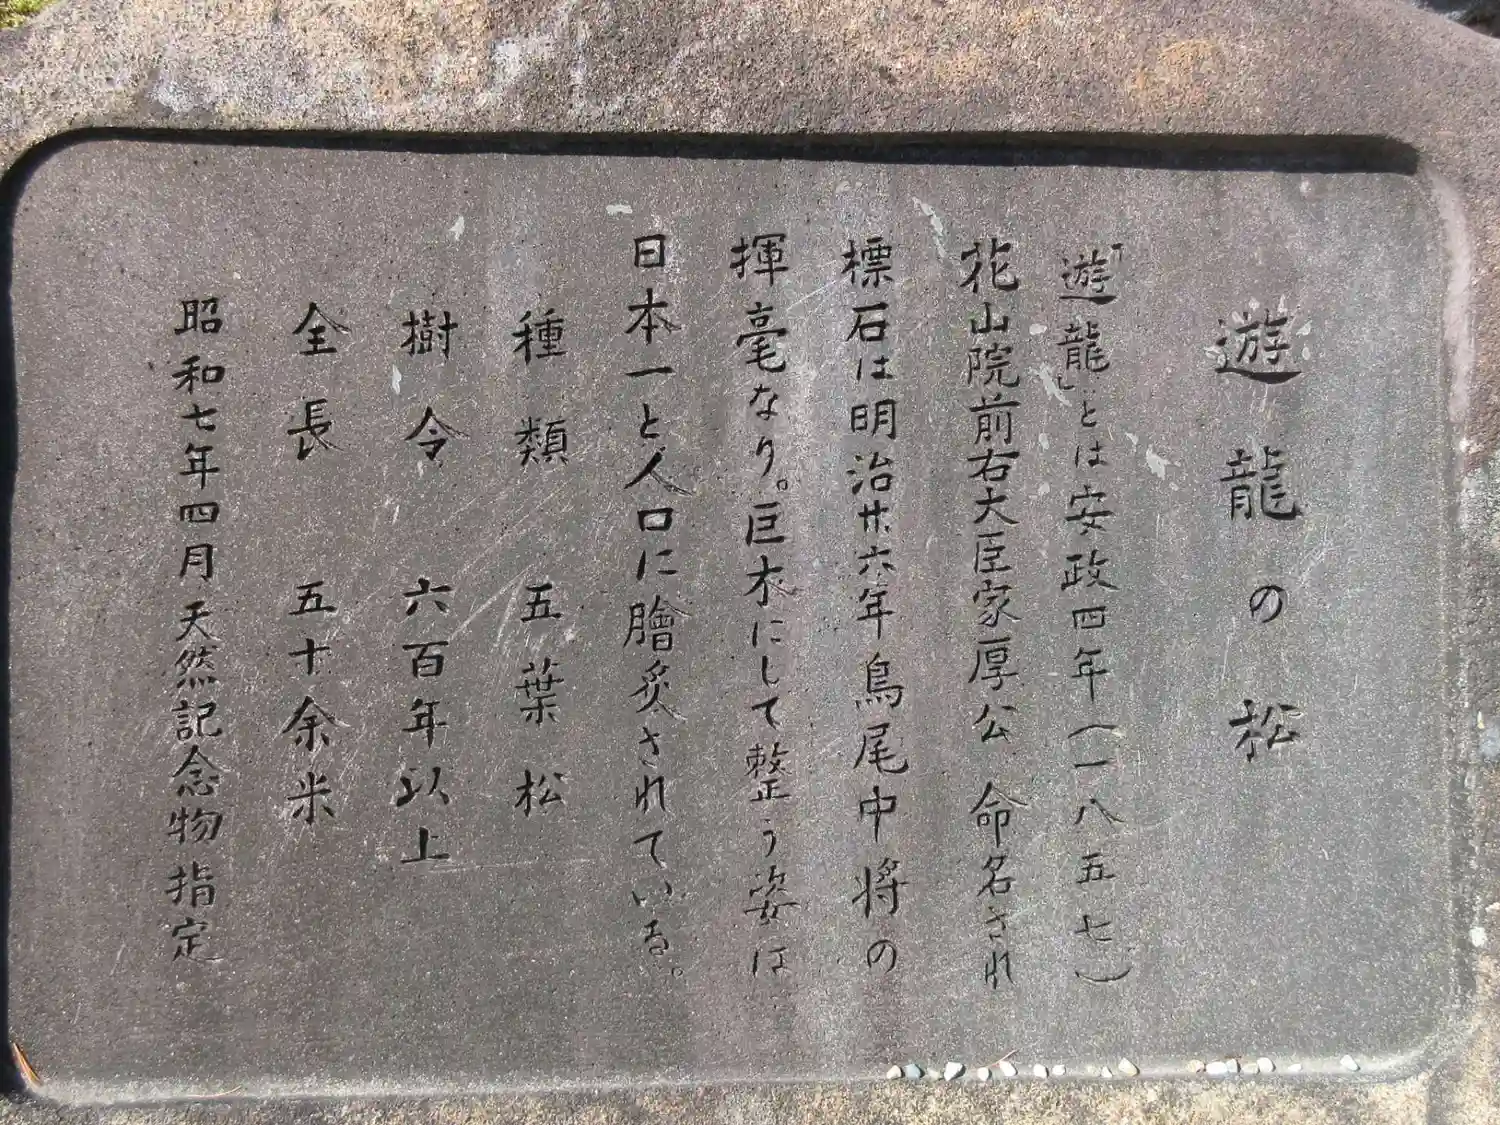 遊龍の松
「遊龍」とは安政四年(一八五七)
花山院前右大臣家厚公 命名され
標石は明治廾六年鳥尾中将の
揮毫なり。巨木にして整う姿は
日本一と人口に膾炙されている。
種類 五葉松
樹令 六百年以上
全長 五十余米
昭和七年四月天然記念物指定